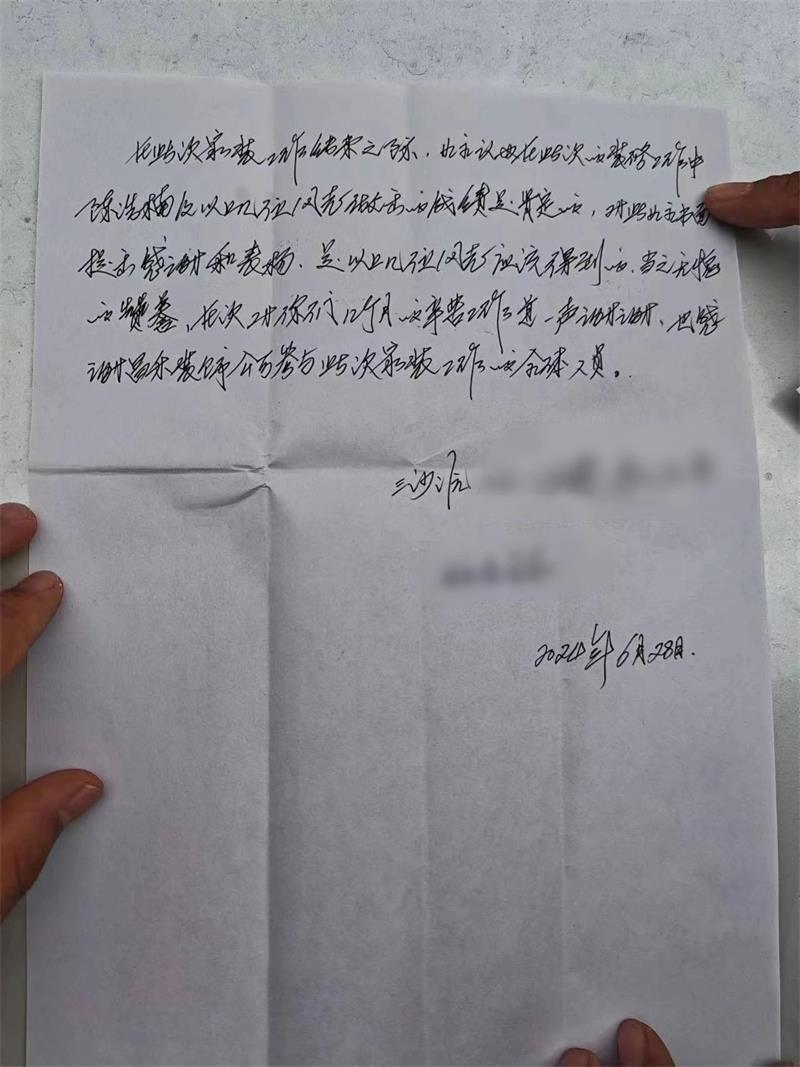 在此次家装工作结束之际，业主认为在此次的装修工作中
陈浩楠及以上几位师傅做出的成绩是肯定的，对此业主书面
提出感谢和表扬，是以上几位师傅应该得到的，当之无愧
的赞誉，在次对你们12个月的辛苦工作道一声谢谢，也感
谢昌禾装饰公司参与此次家装工作的全体人员。
三沙源
2024年6月28日.